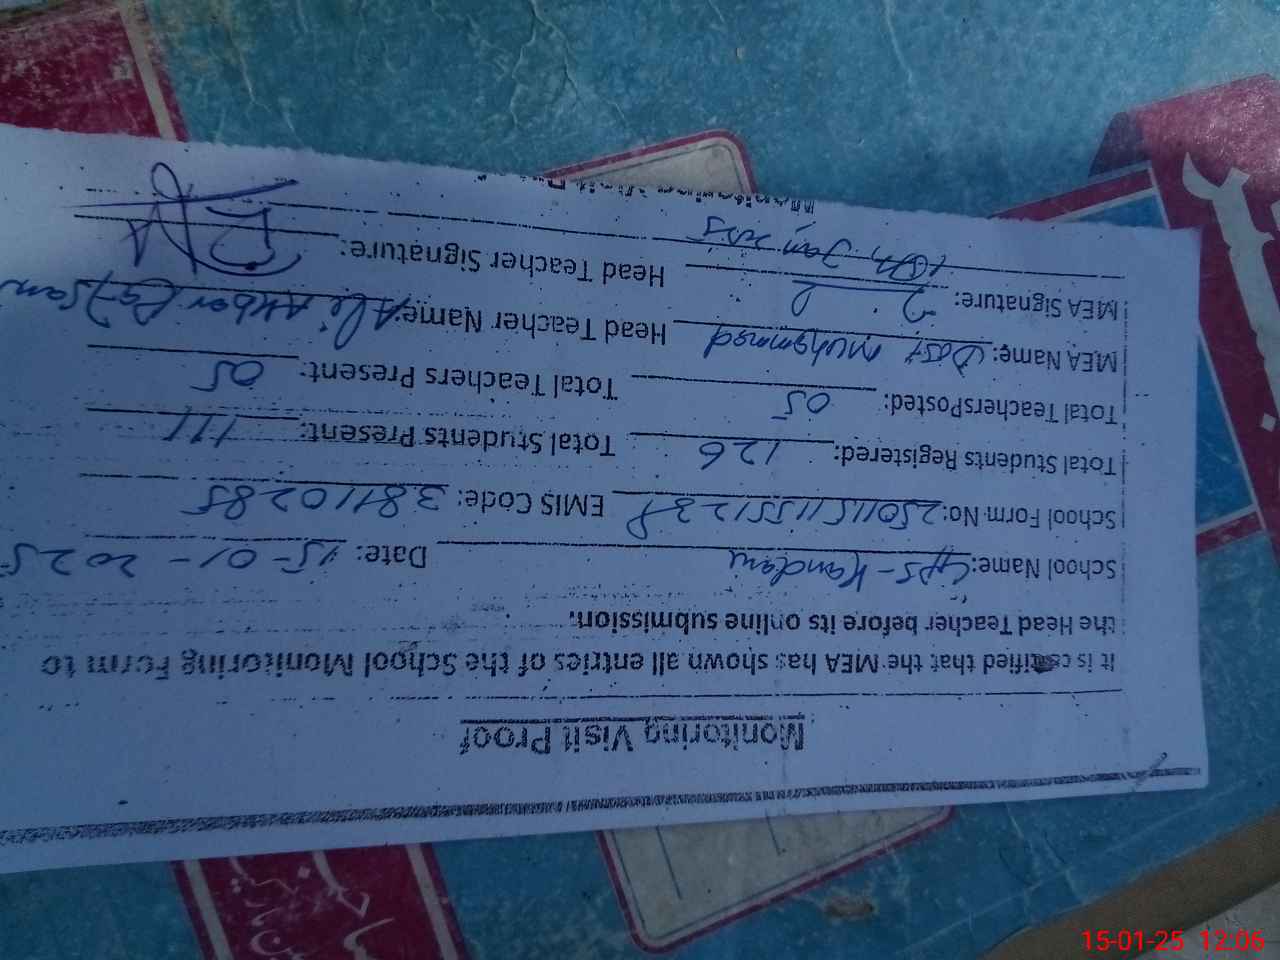 Monitoring Visit Proof
It is certified that the MEA has shown all entries of the School Monitoring Form to
the Head Teacher before its online submission.
School Name: GPS-Kandani Date: 15-01-2025
School Form No: EMIS Code: 38110285
Total Students Registered: 126 Total Students Present: 111
Total TeachersPosted: 05 Total Teachers Present: 05
MEA Name: Dost Muhammad Head Teacher Name: Ali Akbar
MEA Signature: Head Teacher Signature:
Jan 2025
Monitoring Visit
15-01-25 12:06